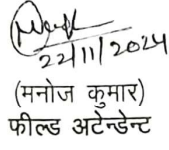 22/11/2024
(मनोज कुमार)
फील्ड अटेन्डेन्ट